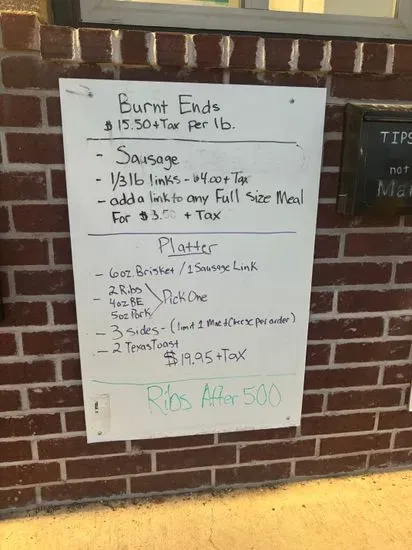 Burnt Ends
$15.50 + Tax per lb.
- Sausage
- 1/3 lb links - $4.00 + Tax
- add a link to any Full Size Meal
For $3.50 + Tax
Platter
- 6oz. Brisket / 1 Sausage Link
- 2 Ribs
4oz BE
5oz Pork
Pick One
- 3 sides - (limit 1 Mac + Cheese per order)
- 2 Texas Toast
$19.95 + Tax
Ribs After 500
TIPS
not
Ma